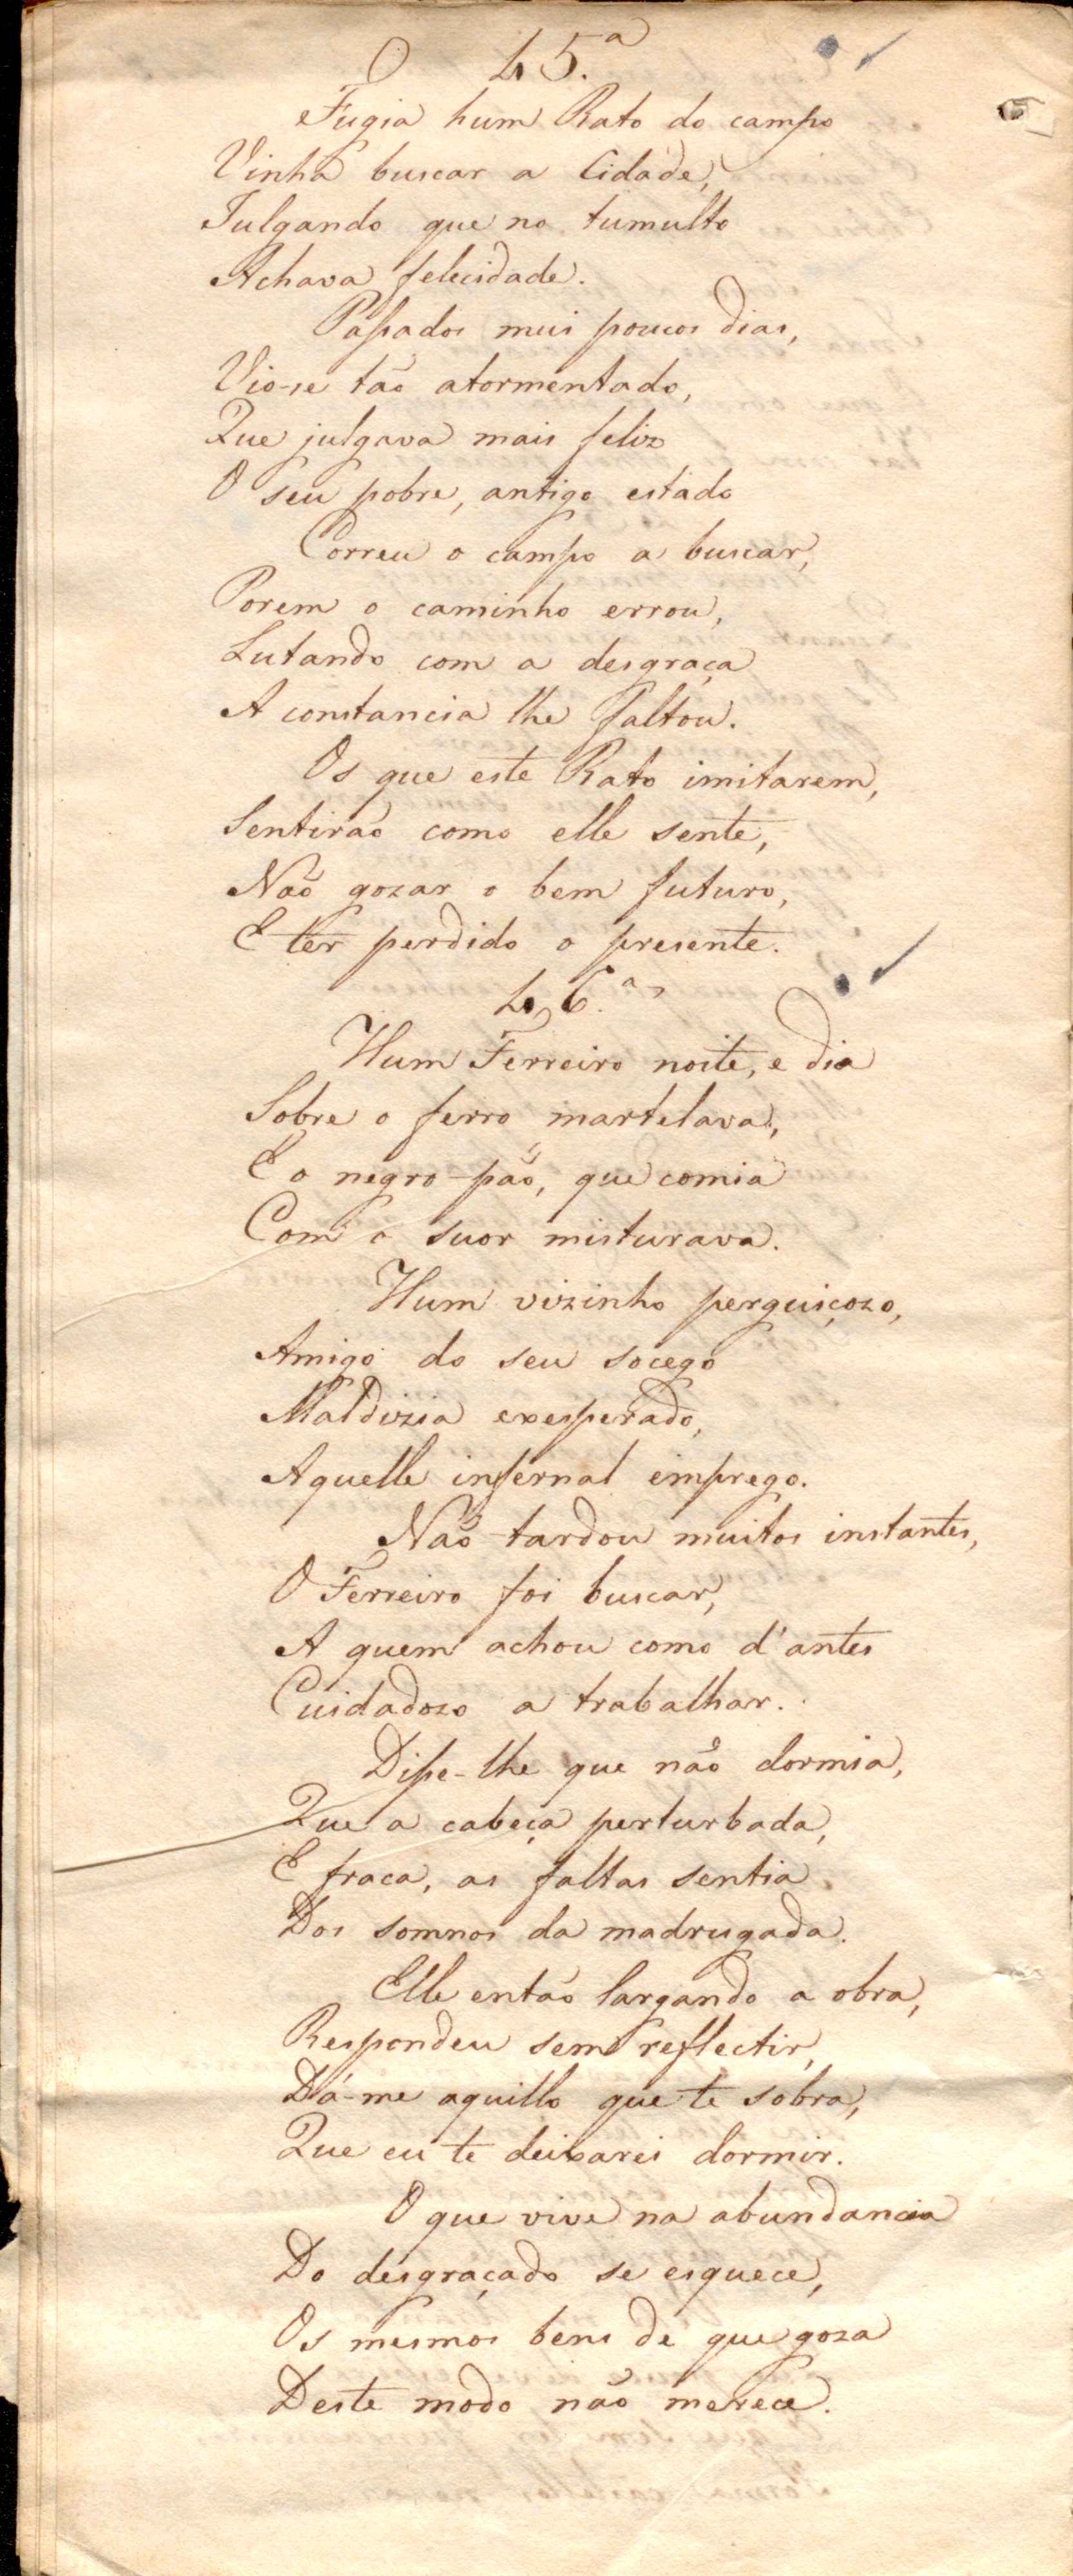 45.ª
Fugia hum Rato do campo
Vinha buscar a Cidade,
Julgando que no tumulto
Achava felecidade.
Passados mui poucos dias,
Vio-se tão atormentado,
Que julgava mais feliz
O seu pobre, antigo estado
Correu o campo a buscar,
Porem o caminho errou,
Lutando com a desgraça
A constancia lhe faltou.
Os que este Rato imitarem,
Sentirão como elle sente,
Não gozar o bem futuro,
E ter perdido o presente.
46.ª
Hum Ferreiro noite, e dia
Sobre o ferro martelava,
E o negro pão, que comia
Com o suor misturava.
Hum vizinho perguiçozo,
Amigo do seu socego
Maldizia exesperado,
Aquelle infernal emprego.
Não tardou muitos instantes,
O Ferreiro foi buscar,
A quem achou como d'antes
Cuidadozo a trabalhar.
Disse-lhe que não dormia,
Que a cabeça perturbada,
E fraca, as faltas sentia
Dos somnos da madrugada.
Elle então largando a obra,
Respondeu sem reflectir,
Dá-me aquillo que te sobra,
Que eu te deixarei dormir.
O que vive na abundancia
Do desgraçado se esquece,
Os mesmos bens de que goza
Deste modo não merece.